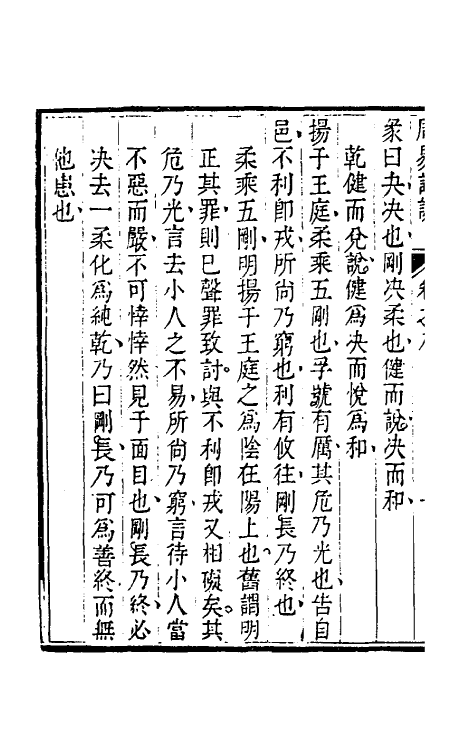 彖曰夬决也剛决柔也健而說决而和
乾健而兌說健爲决而悅爲和
揚于王庭柔乘五剛也孚號有厲其危乃光也吿自
邑不利卽戎所尚乃窮也利有攸往剛長乃終也
柔乘五剛明揚于王庭之爲陰在陽上也舊謂明
正其罪則巳聲罪致討與不利卽戎又相礙矣其
危乃光言去小人之不易所尚乃窮言待小人當
不惡而嚴不可悻悻然見于面目也剛長乃終必
决去一柔化爲純乾乃曰剛長乃可爲善終而無
他患也